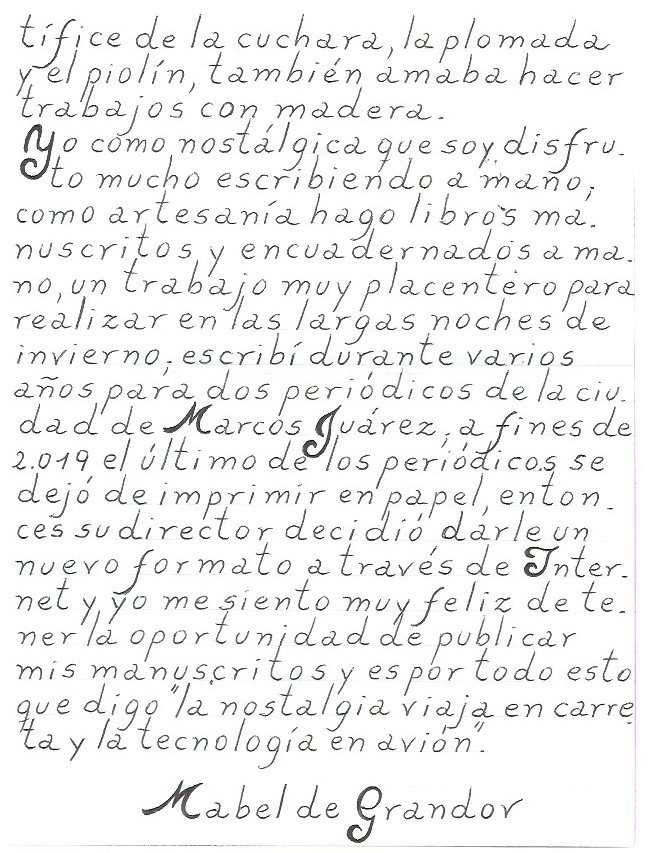 tífice de la cuchara, la plomada
y el piolín, también amaba hacer
trabajos con madera.
Yo como nostálgica que soy disfru-
to mucho escribiendo a mano;
como artesanía hago libros ma-
nuscritos y encuadernados a ma-
no, un trabajo muy placentero para
realizar en las largas noches de
invierno; escribí durante varios
años para dos periódicos de la ciu-
dad de Marcos Juárez, a fines de
2.019 el último de los periódicos se
dejó de imprimir en papel, enton-
ces su director decidió darle un
nuevo formato a través de Inter-
net y yo me siento muy feliz de te-
ner la oportunidad de publicar
mis manuscritos y es por todo esto
que digo "la nostalgia viaja en carre
"ta y la tecnología en avión".
Mabel de Grandov